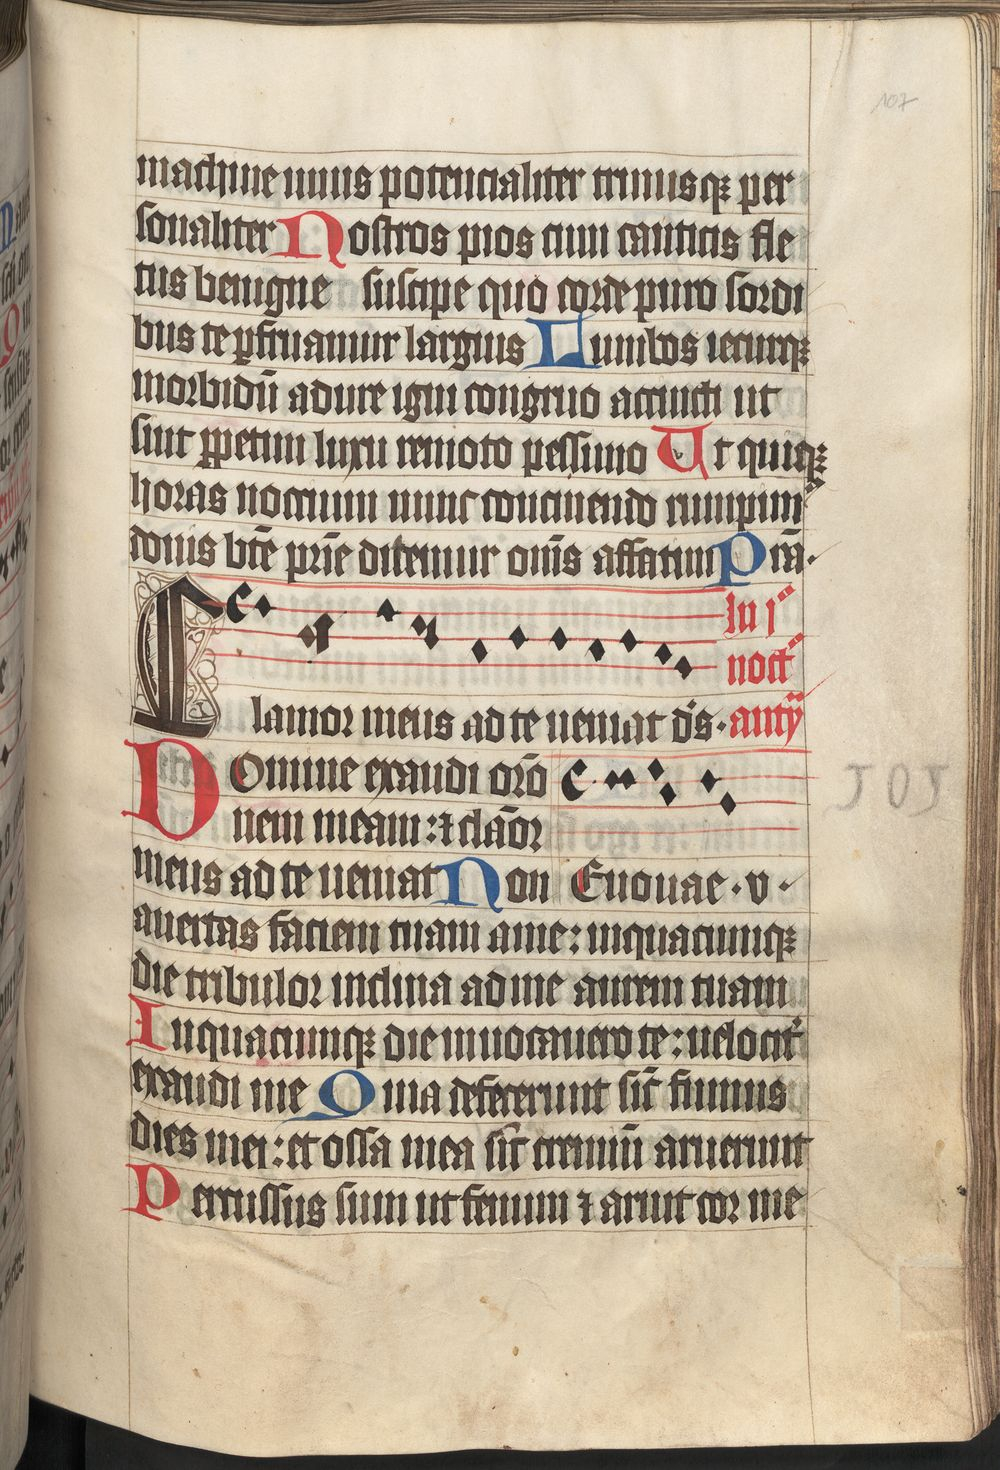 107
machine unius potencialiter trinusqꝫ per
sonaliter Nostros pios cum canticis fle
tus benigne suscipe quo corde puro sordi
bus te ꝑfruamur largius Lumbos iecurqꝫ
morbidū adure igni congruo accincti ut
sint ꝑpetim luxu remoto pessimo Ut quiqꝫ
horas noctium nunc concinendo rumpim᷒
donis bt̄e pr̄ie ditemur om̄s affatim Prā·
In j᷒
noct᷒
Clamor meus ad te ueniat dS· antÿ
Domine exaudi orō
nem meam: ⁊ clāor
meus ad te ueniat Non Euouae · v ·
auertas faciem tuam a me: inquacumqꝫ
die tribulor inclina ad me aurem tuam
Inquacumqꝫ die inuocauero te: uelocit᷒
exaudi me Quia defecerunt sic̄ fumus
dies mei: et ossa mea sic̄ cremiū aruerunt
Percussus sum ut fenum ⁊ aruit cor me
101